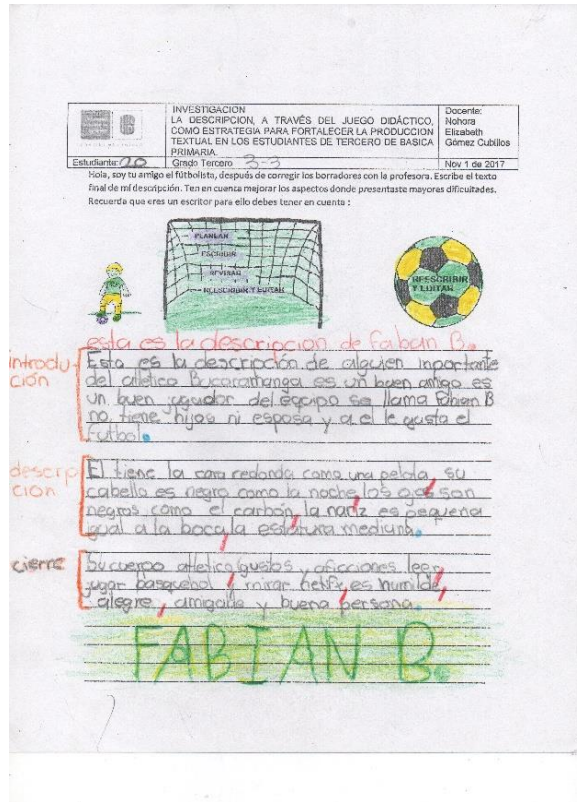 INVESTIGACION
LA DESCRIPCION, A TRAVÉS DEL JUEGO DIDÁCTICO,
COMO ESTRATEGIA PARA FORTALECER LA PRODUCCION
TEXTUAL EN LOS ESTUDIANTES DE TERCERO DE BASICA
PRIMARIA.
Docente:
Nohora
Elizabeth
Gómez Cubillos
Estudiante: 20
Grado Tercero 3-3
Nov 1 de 2017
Hola, soy tu amigo el fútbolista, después de corregir los borradores con la profesora. Escribe el texto
final de mi descripción. Ten en cuenta mejorar los aspectos donde presentaste mayores dificultades.
Recuerda que eres un escritor para ello debes tener en cuenta :
PLANEAR
ESCRIBIR
REVISAR
REESCRIBIR Y EDITAR
REESCRIBIR
Y EDITAR
esta es la descripcion de fabian B.
introdu
ción
Esta es la descripción de alguien inportante
del atletico Bucaramanga es un buen amigo es
un buen jugador del equipo se llama Fabian B
no tiene hijos ni esposa y a el le gusta el
futbol.
descrip
cion
El tiene la cara redonda como una pelota, su
cabello es negro como la noche, los ojos son
negros como el carbón, la nariz es pequeña
igual a la boca, la estatura mediuna.
cierre
Su cuerpo atletico, gustos y aficciones leer,
jugar basquebol, mirar netflx, es humilde,
alegre, amigable y buena persona.
FABIAN B.